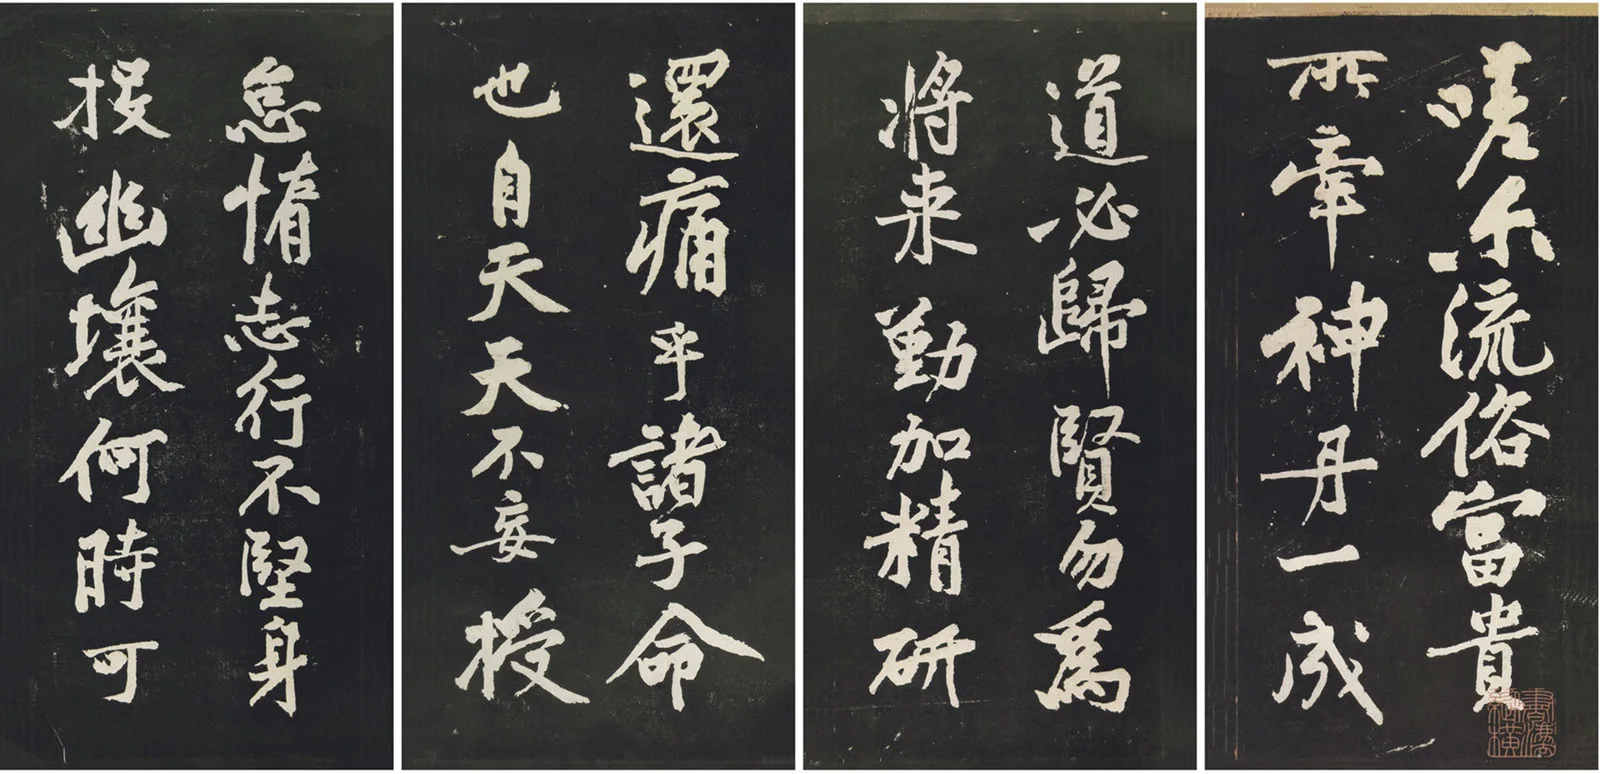 嗟尔流俗富貴
所牽神丹一成
道必歸賢勿為
將来勤加精研
還痛乎諸子命
也自天天不妄授
怠惰志行不堅身
投幽壤何時可